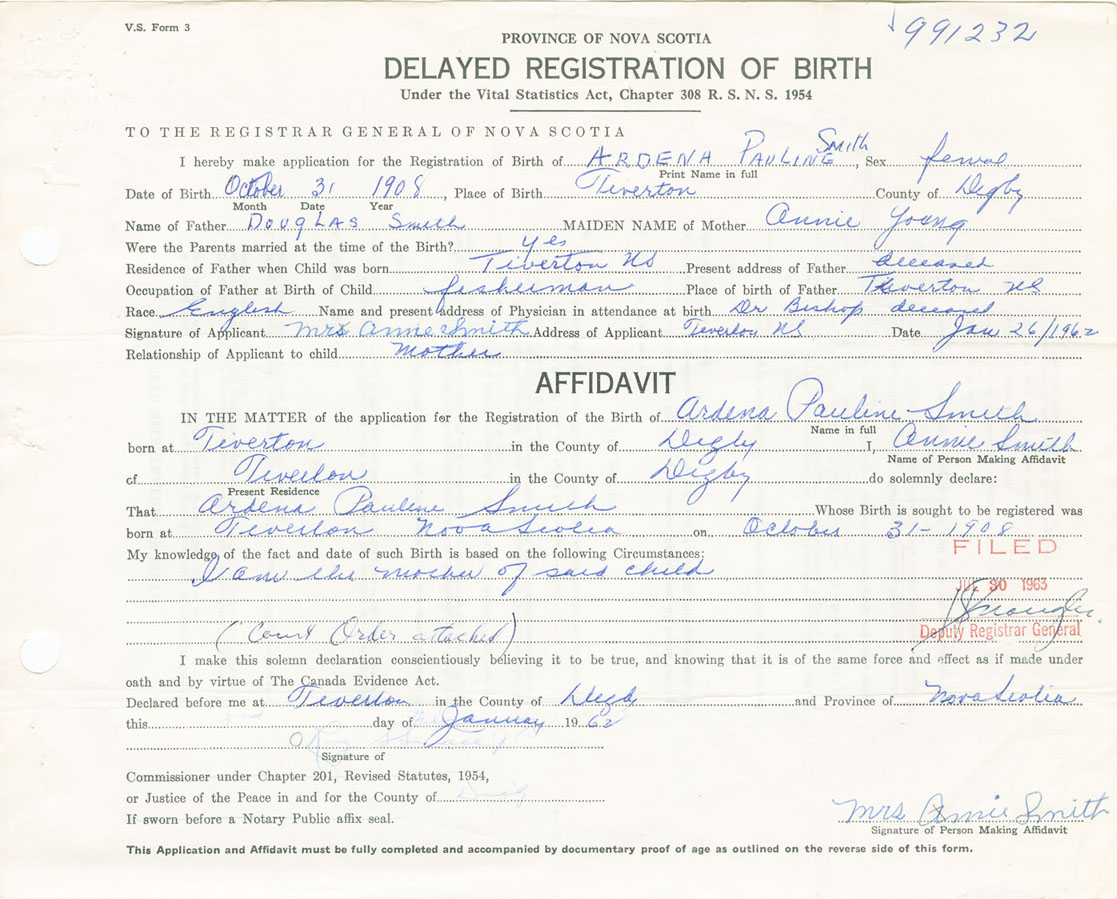 V.S. Form 3
991232
PROVINCE OF NOVA SCOTIA
DELAYED REGISTRATION OF BIRTH
Under the Vital Statistics Act, Chapter 308 R. S. N. S. 1954
TO THE REGISTRAR GENERAL OF NOVA SCOTIA
I hereby make application for the Registration of Birth of ARDENA PAULINE Smith, Sex female
Print Name in full
Date of Birth October 31 1908, Place of Birth Tiverton County of Digby
Month Date Year
Name of Father DOUGLAS Smith MAIDEN NAME of Mother Annie Young
Were the Parents married at the time of the Birth? yes
Residence of Father when Child was born Tiverton NS Present address of Father deceased
Occupation of Father at Birth of Child fisherman Place of birth of Father Tiverton NS
Race English Name and present address of Physician in attendance at birth Dr Bishop deceased
Signature of Applicant Mrs Annie Smith Address of Applicant Tiverton NS Date Jan 26/1962
Relationship of Applicant to child mother
AFFIDAVIT
IN THE MATTER of the application for the Registration of the Birth of Ardena Pauline Smith
Name in full
born at Tiverton in the County of Digby I, Annie Smith
Name of Person Making Affidavit
of Tiverton in the County of Digby do solemnly declare:
Present Residence
That Ardena Pauline Smith Whose Birth is sought to be registered was
born at Tiverton Nova Scotia on October 31-1908
My knowledge of the fact and date of such Birth is based on the following Circumstances:
FILED
I am the mother of said child
30 1963
(Court Order attached)
Deputy Registrar General
I make this solemn declaration conscientiously believing it to be true, and knowing that it is of the same force and effect as if made under
oath and by virtue of The Canada Evidence Act.
Declared before me at Tiverton in the County of Digby and Province of Nova Scotia
this day of January 1962
Signature of
Commissioner under Chapter 201, Revised Statutes, 1954,
or Justice of the Peace in and for the County of
If sworn before a Notary Public affix seal.
Mrs Annie Smith
Signature of Person Making Affidavit
This Application and Affidavit must be fully completed and accompanied by documentary proof of age as outlined on the reverse side of this form.